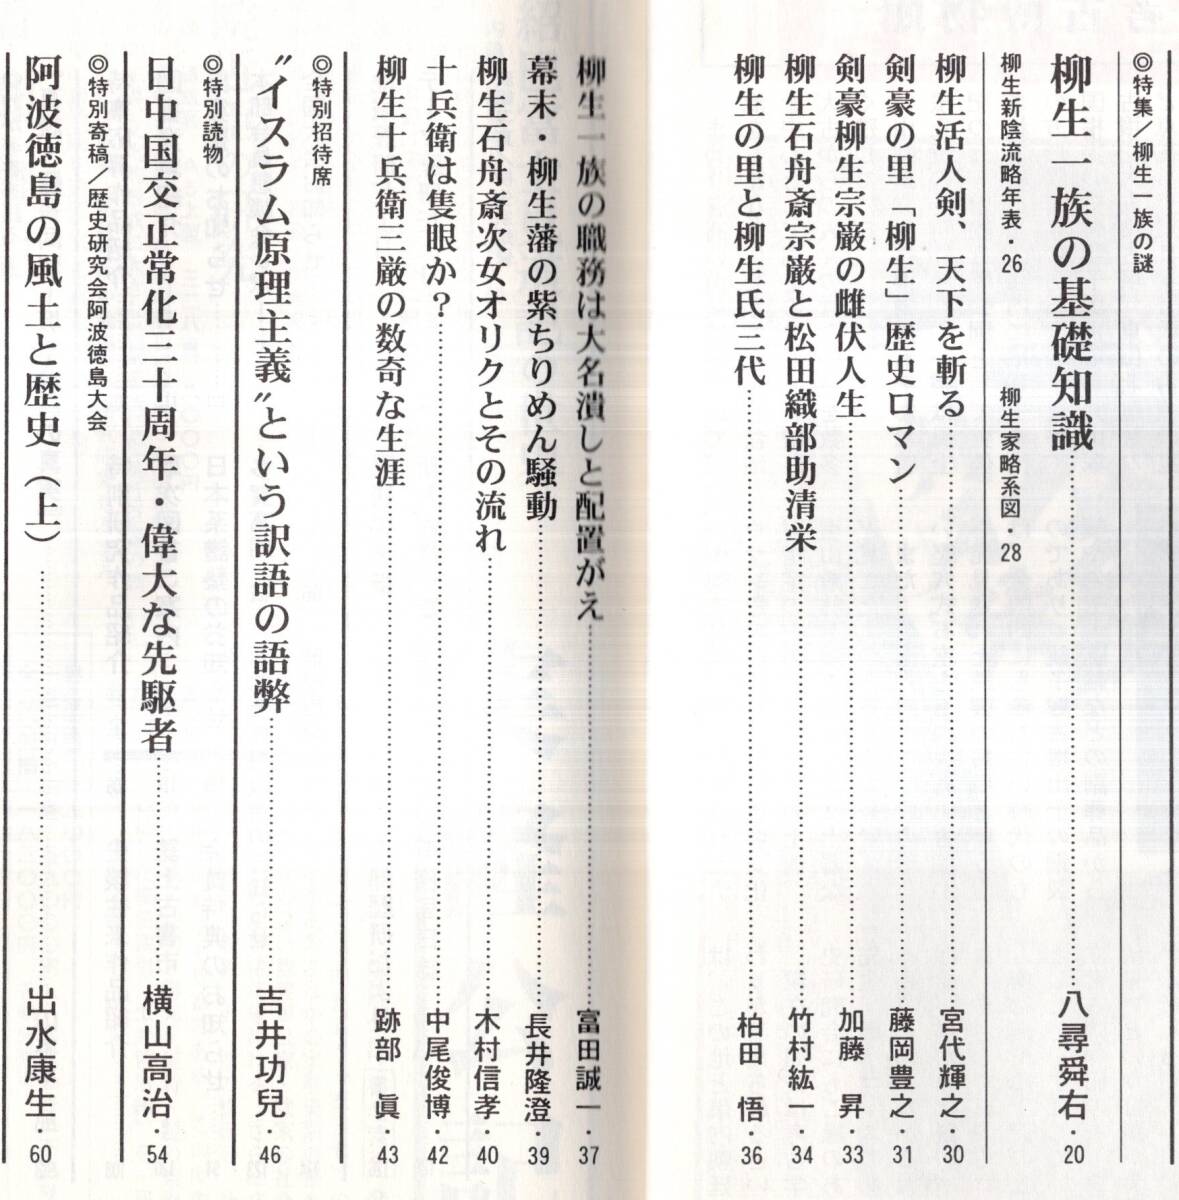 ◎特集／柳生一族の謎
柳生一族の基礎知識……八尋舜右・20
柳生新陰流略年表・26　柳生家略系図・28
柳生活人剣、天下を斬る……宮代輝之・30
剣豪の里「柳生」歴史ロマン……藤岡豊之・31
剣豪柳生宗厳の雌伏人生……加藤　昇・33
柳生石舟斎宗厳と松田織部助清栄……竹村紘一・34
柳生の里と柳生氏三代……柏田　悟・36
柳生一族の職務は大名潰しと配置がえ……富田誠一・37
幕末・柳生藩の紫ちりめん騒動……長井隆澄・39
柳生石舟斎次女オリクとその流れ……木村信孝・40
十兵衛は隻眼か？……中尾俊博・42
柳生十兵衛三厳の数奇な生涯……跡部　眞・43
◎特別招待席
〝イスラム原理主義〟という訳語の語弊……吉井功兒・46
◎特別読物
日中国交正常化三十周年・偉大な先駆者……横山高治・54
◎特別寄稿／歴史研究会阿波徳島大会
阿波徳島の風土と歴史（上）……出水康生・60